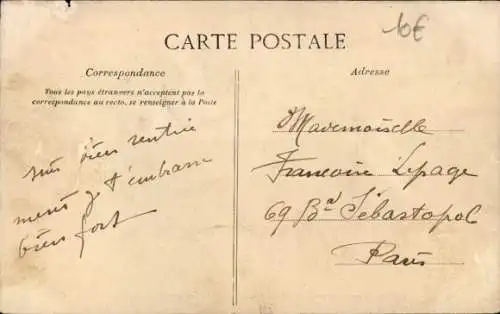 10€
CARTE POSTALE
Correspondance
Tous les pays étrangers n'acceptent pas la
correspondance au recto, se renseigner à la Poste
suis bien rentrée
t'embrasse
bien fort
Adresse
Mademoiselle
Françoise Lepage
69 Bd Sébastopol
Paris